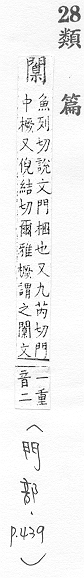 28
類篇
闑
魚列切說文門梱也又九芮切門
中橛又倪結切爾雅橛謂之闑文
一重
音二
(門部·
P.439)